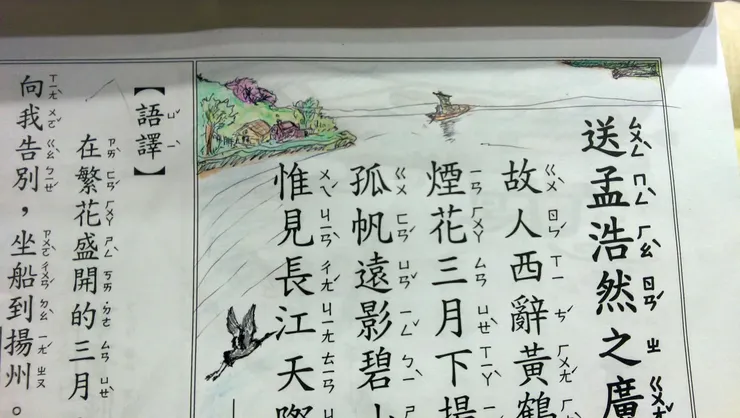 送孟浩然之廣
故人西辭黃鶴
煙花三月下揚
孤帆遠影碧
惟見長江天際
【語譯】
在繁花盛開的三月
向我告別,坐船到揚州。